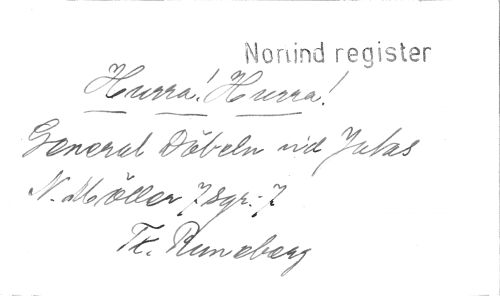 Nomind register
Hurra! Hurra!
General Döbeln vid Jutas
N. Möller 7sgr:-7
Tx. Runeberg